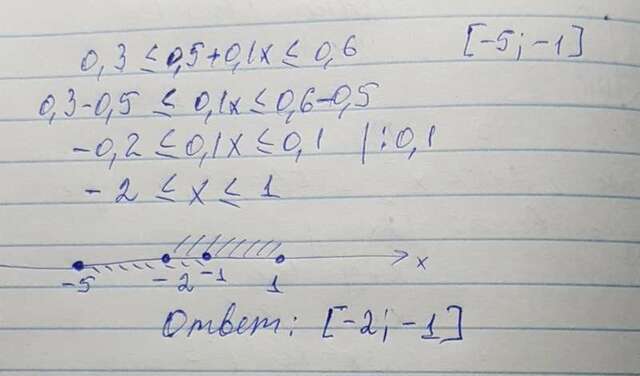 0,3 ≤ 0,5+0,1x ≤ 0,6 [-5; -1]
0,3-0,5 ≤ 0,1x ≤ 0,6-0,5
-0,2 ≤ 0,1x ≤ 0,1 |:0,1
-2 ≤ x ≤ 1
-5 -2 -1 1 x
Ответ: [-2; -1]